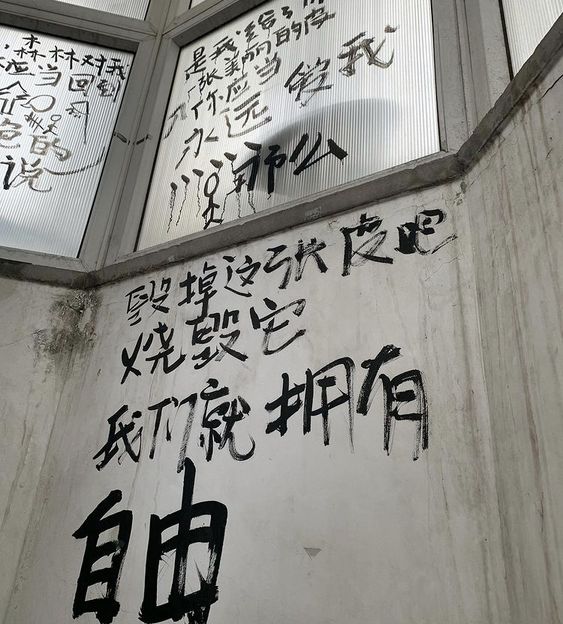 森林对我
应当回到
色的
说
是我给了你
一张美丽的皮
你应当
永远爱我
那么
毁掉这张皮吧
烧毁它
我们就拥有
自由